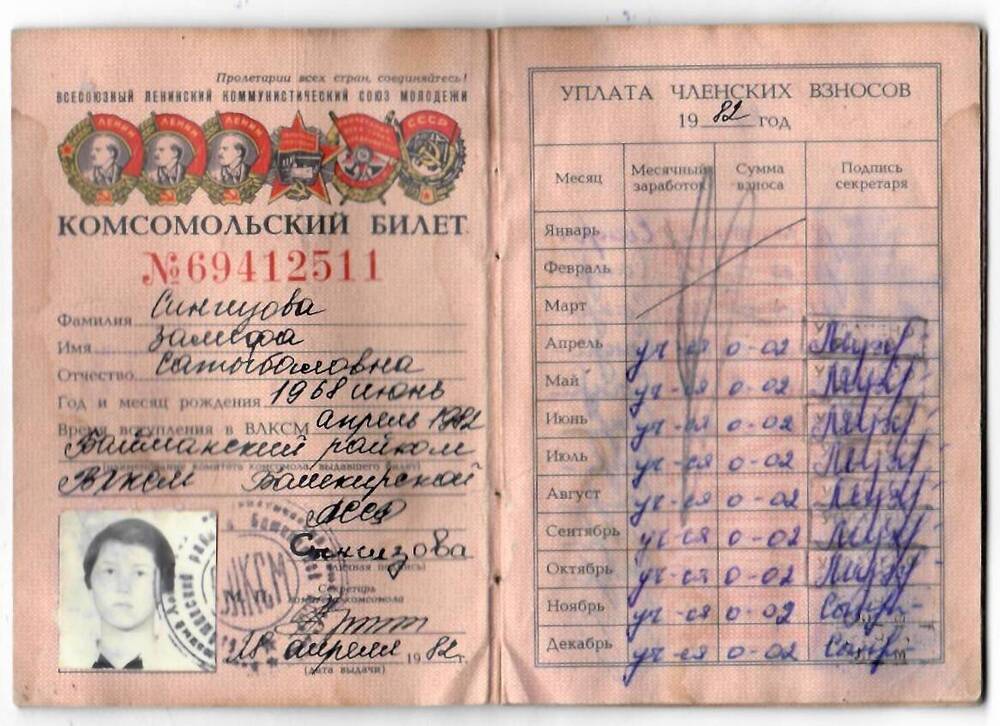 Пролетарии всех стран, соединяйтесь!
ВСЕСОЮЗНЫЙ ЛЕНИНСКИЙ КОММУНИСТИЧЕСКИЙ СОЮЗ МОЛОДЕЖИ
ЛЕНИН ЛЕНИН ЛЕНИН СССР
КОМСОМОЛЬСКИЙ БИЛЕТ
№69412511
Фамилия Сингизова
Имя Залифа
Отчество Сатыбаловна
Год и месяц рождения 1968 июнь
Время вступления в ВЛКСМ апрель 1982
Баймакский райком
комитета комсомола, выдавшего билет)
ВЛКСМ Башкирской
АССР
Сингизова
(личная подпись)
ВЛКСМ
М. П.
Секретарь
комитета комсомола
28 апреля 1982 г.
(дата выдачи)
УПЛАТА ЧЛЕНСКИХ ВЗНОСОВ
1982 год
Месяц Месячный заработок Сумма взноса Подпись секретаря
Январь
Февраль
Март
Апрель уч-ся 0-02
Май уч-ся 0-02
Июнь уч-ся 0-02
Июль уч-ся 0-02
Август уч-ся 0-02
Сентябрь уч-ся 0-02
Октябрь уч-ся 0-02
Ноябрь уч-ся 0-02
Декабрь уч-ся 0-02